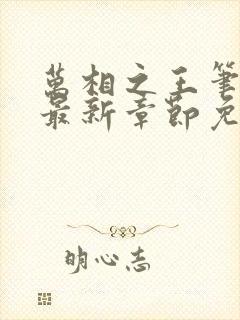 萬相之王筆
最新章節免
明心志